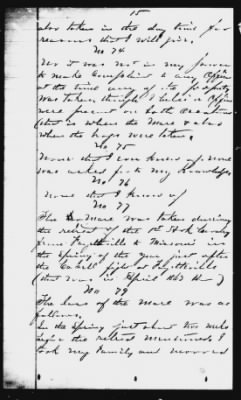 15
also taken in the day time for
reasons that I will give.
No 74
No it was not in my power
to make complaint to any Officer
at the time any of the property
was taken, though I believe Officers
were present on both occasions
that is when the Mare &
when the hogs were taken.
No 75
None that I can know of. none
was asked for to my knowledge
No 76
None that I know of
No 77
The Mare was taken during
the retreat of the 1st Ark Cavalry
from Fayetteville to Missouri in
the Spring of the year just after
the Cabell fight at Fayetteville
(that was in April 1863
No 79
The loss of the Mare was as
follows.
In the Spring just about two weeks
before the retreat mentioned I
took my family and moved